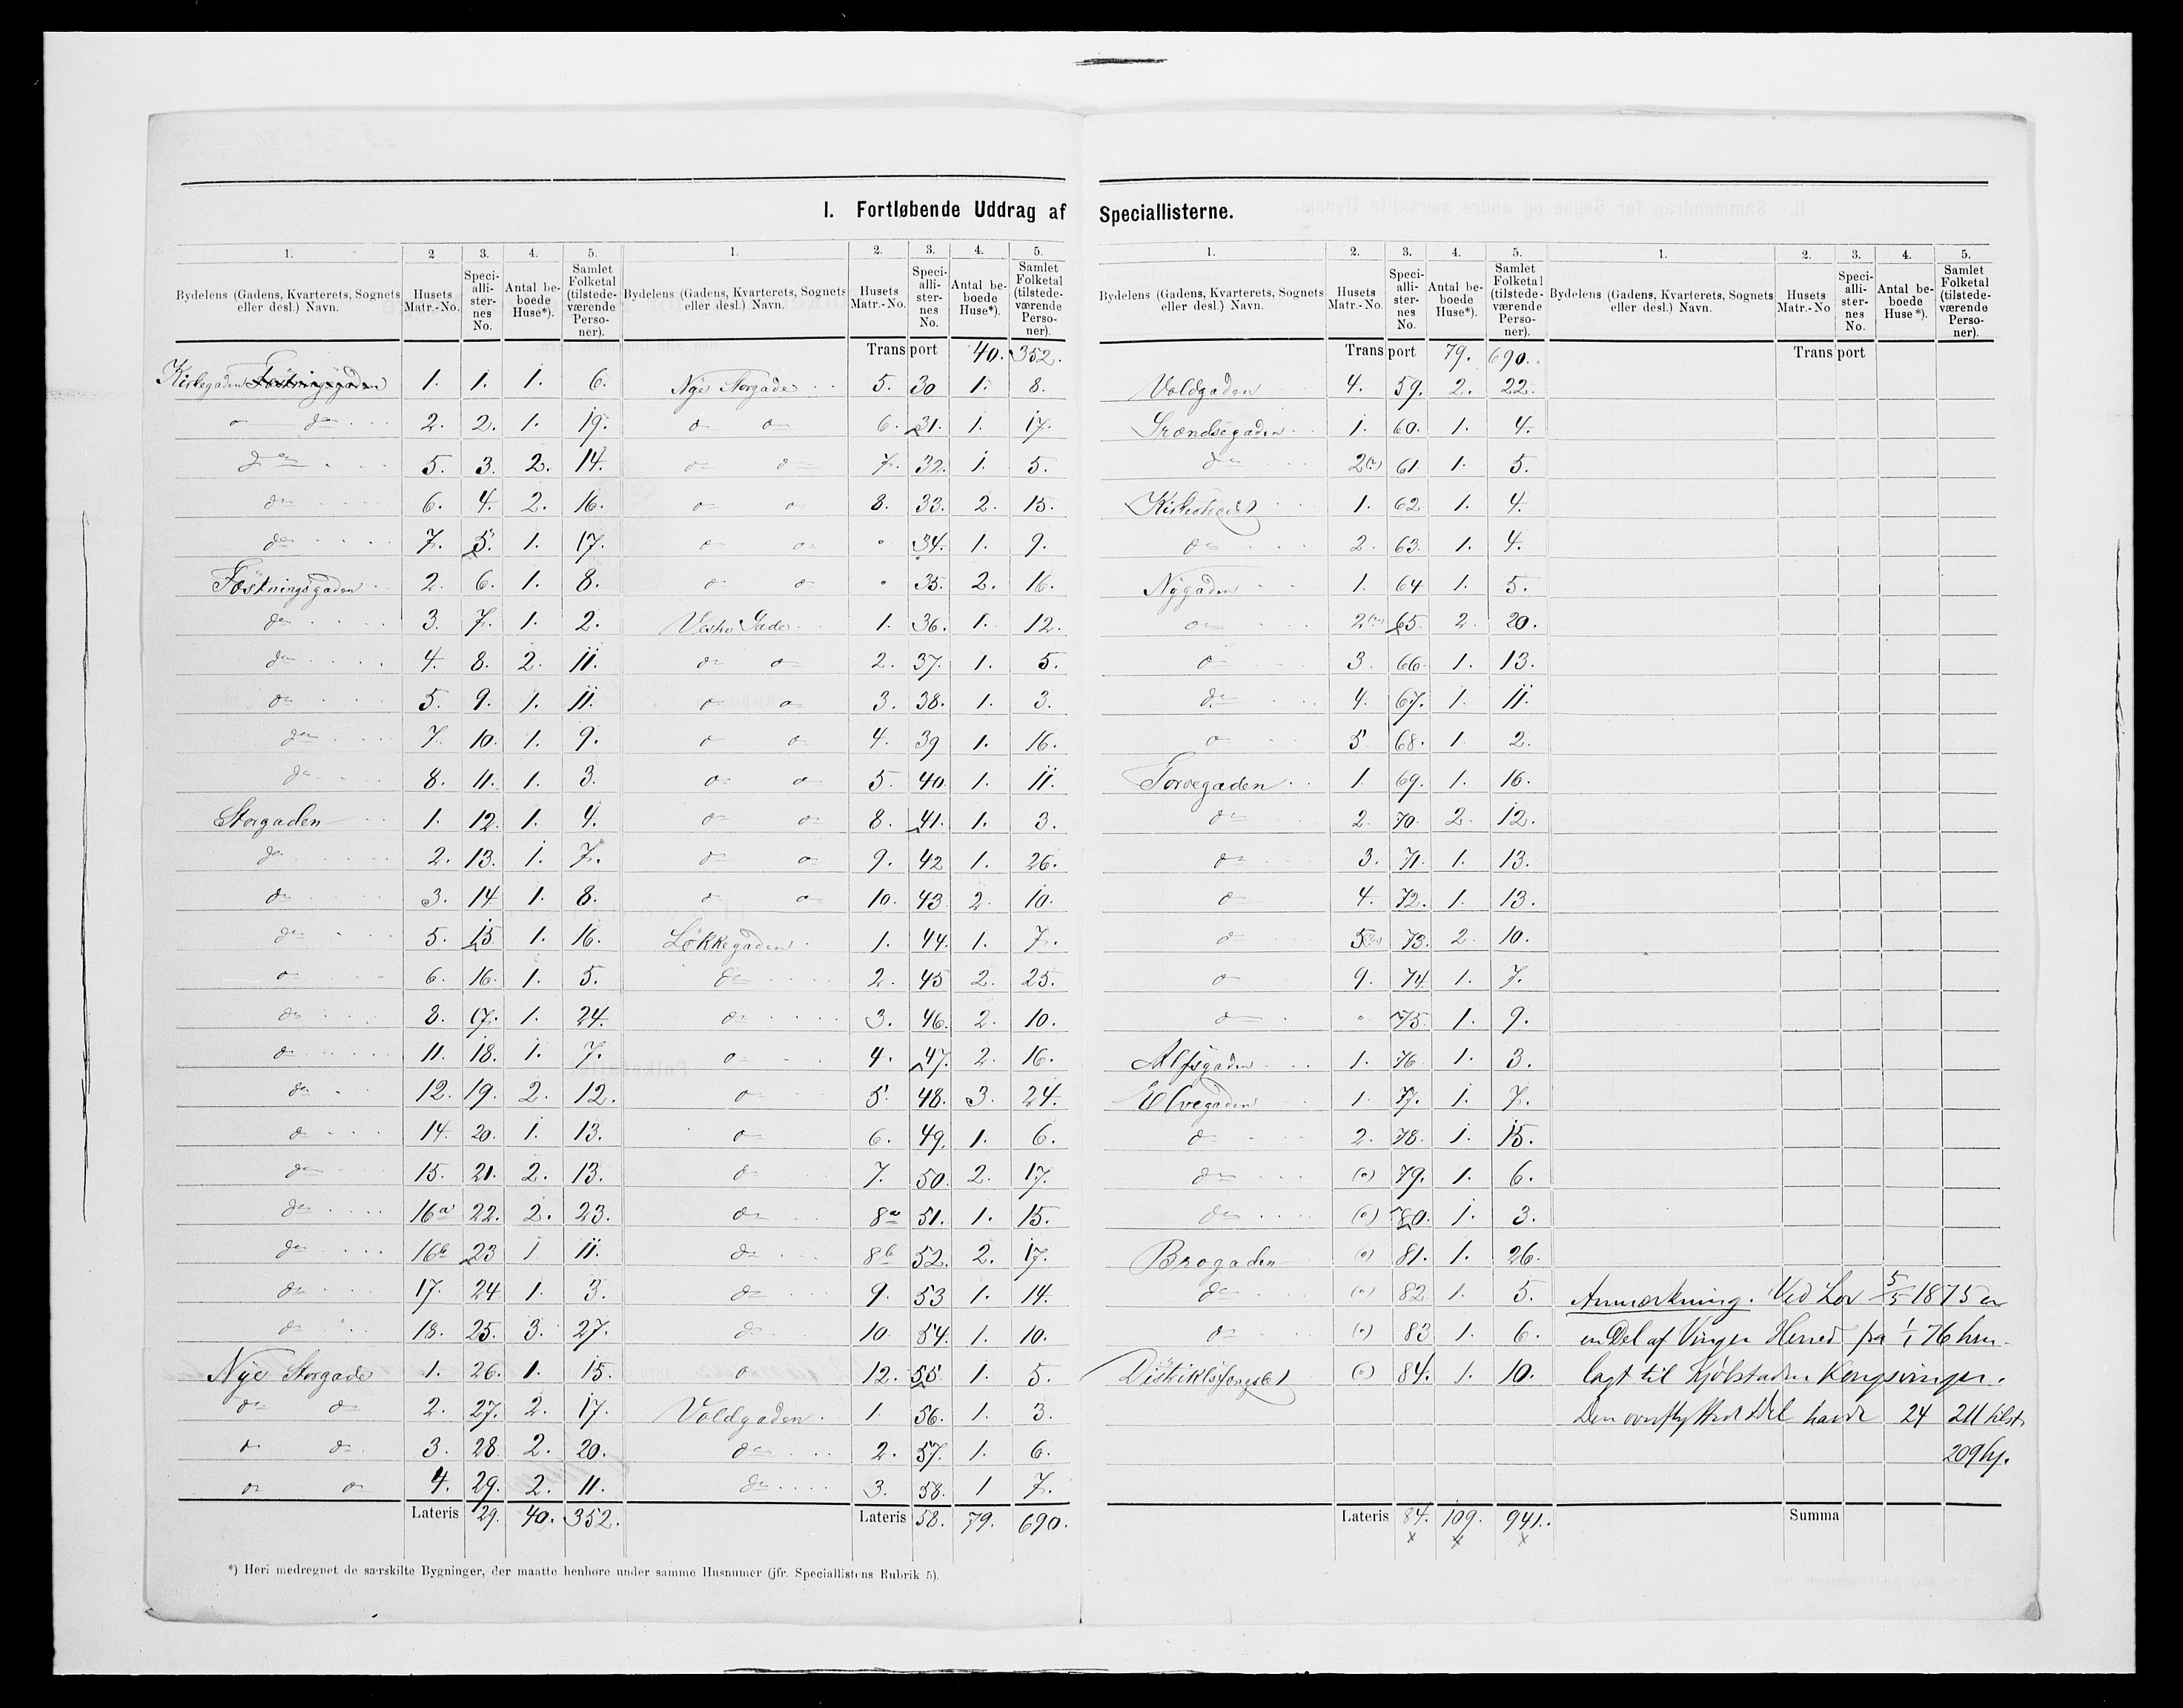 I. Fortløbende Uddrag af Speciallisterne.
1. 2 3. 4. 5. 1. 2. 3. 4. 5. 1. 2. 3. 4. 5. 1. 2. 3. 4. 5.
Bydelens (Gadens, Kvarterets, Sognets eller desl.) Navn. Husets Matr.-No. Speci-alli-ster-nes No. Antal be-boede Huse*). Samlet Folketal (tilstede-værende Perso-ner).
Bydelens (Gadens, Kvarterets, Sognets eller desl.) Navn. Husets Matr.-No. Speci-alli-ster-nes No. Antal be-boede Huse*). Samlet Folketal (tilstede-værende Perso-ner).
Bydelens (Gadens, Kvarterets, Sognets eller desl.) Navn. Husets Matr.-No. Speci-alli-ster-nes No. Antal be-boede Huse*). Samlet Folketal (tilstede-værende Perso-ner).
Bydelens (Gadens, Kvarterets, Sognets eller desl.) Navn. Husets Matr.-No Speci-alli-ster-nes No. Antal be-boede Huse*). Samlet Folketal (tilstede-værende Perso-ner).
Kirkegaden Fæstningsgaden 1. 1. 1. 6.
do 2. 2. 1. 19.
do 5. 3. 2. 14.
do 6. 4. 2. 16.
do 7. 5. 1. 17.
Fæstningsgaden 2. 6. 1. 8.
do 3. 7. 1. 2.
do 4. 8. 2. 11.
do 5. 9. 1. 11.
do 7. 10. 1. 9.
do 8. 11. 1. 3.
Storgaden 1. 12. 1. 4.
do 2. 13. 1. 7.
do 3. 14 1. 8.
do 5. 15 1. 16.
do 6. 16. 1. 5.
do 8. 17. 1. 24.
do 11. 18. 1. 7.
do 12. 19. 2. 12.
do 14. 20. 1. 13.
do 15. 21. 2. 13.
do 16a 22. 2. 23.
do 16b 23 1 11.
do 17. 24 1. 3.
do 18. 25. 3. 27.
Nye Storgade 1. 26. 1. 15.
do do 2. 27. 2. 17.
do do 3. 28. 2. 20.
do do 4. 29. 2. 11.
Lateris 29. 40. 352.
Transport 40. 352.
Nye Storgade 5. 30 1. 8.
do do 6. 31. 1. 17.
do do 7. 32. 1. 5.
do do 8. 33. 2. 15.
do do " 34. 1. 9.
do do " 35. 2. 16.
Vestre Gade 1. 36. 1. 12.
do do 2. 37. 1. 5.
do do 3. 38. 1. 3.
do do 4. 39 1. 16.
do do 5. 40. 1. 11.
do do 8. 41. 1. 3.
do do 9. 42 1. 26.
do do 10. 43 2. 10.
Løkkegaden 1. 44. 1. 7.
do 2. 45 2. 25.
do 3. 46. 2. 10.
do 4. 47. 2. 16.
do 5. 48. 3. 24.
do 6. 49. 1. 6.
do 7. 50. 2. 17.
do 8a 51. 1. 15.
do 8b 52. 2. 17.
do 9. 53 1. 14.
do 10. 54. 1. 10.
do 12. 55. 1. 5.
Voldgaden 1. 56. 1. 3.
do 2. 57. 1. 6.
do 3. 58. 1 7.
Lateris 58. 79. 690.
Transport 79. 690.
Voldgaden 4. 59. 2. 22.
Grændsegaden 1. 60. 1. 4.
do 2 61 1. 5.
1. 62 1. 4.
do 2. 63. 1. 4.
Nygaden 1. 64 1. 5.
do 2 65. 2. 20.
do 3. 66. 1. 13.
do 4. 67. 1. 11.
do 5 68. 1. 2.
Torvegaden 1. 69. 1. 16.
do 2. 70. 2. 12.
do 3. 71. 1. 13.
do 4. 72. 1. 13.
do 5 73. 2. 10.
do 9. 74. 1. 7.
do " 75. 1. 9.
Alfsgaden 1. 76 1. 3.
Elvegaden 1. 77. 1. 7.
do 2. 78. 1. 15.
do (") 79. 1. 6.
do (") 80. 1. 3.
Brogaden (") 81. 1. 26.
do (") 82 1. 5.
do (") 83 1. 6.
Distriktsfængslet (") 84. 1. 10.
Lateris 84. 109. 941.
x x x
Transport
Anmærkning. Ved Lov 5/5 1875 er
en Del af Vinger Herred fra 1/1 76 hen-
lagt til Kjøbstaden Kongsvinger.
Den overflyttede Del havde 24 211 tilst.
209 hj.
Summa
*) Heri medregnet de særskilte Bygninger, der maatte henhøre under samme Husnumer (jfr. Speciallistens Rubrik 5).